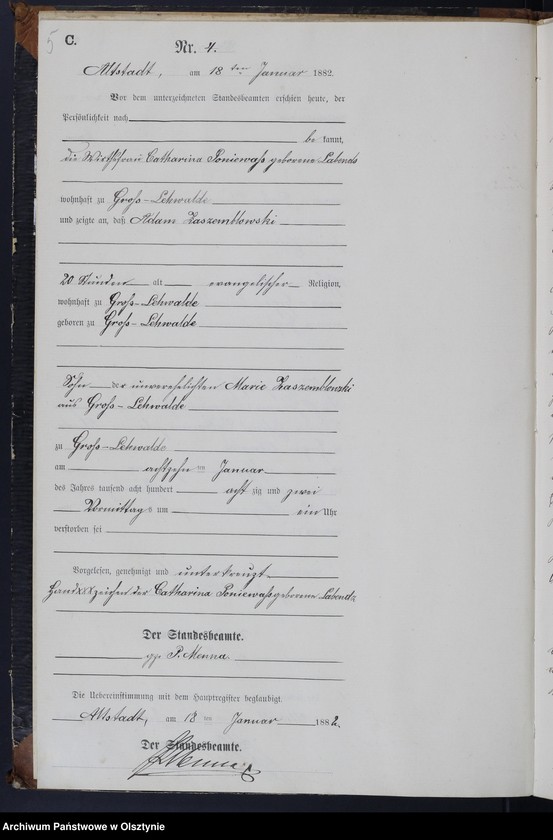 5
C.
Nr. 4.
Altstadt, am 18 ten Januar 1882.
Vor dem unterzeichneten Standesbeamten erschien heute, der
Persönlichkeit nach
be kannt,
die Wirthsfrau Catharina Poniewaß geborene Labends
wohnhaft zu Groß-Lehwalde
und zeigte an, daß Adam Kaszemblowski
20 Stunden alt evangelischer Religion,
wohnhaft zu Groß-Lehwalde
geboren zu Groß-Lehwalde
Sohn der unverehelichten Marie Kaszemblowski
aus Groß-Lehwalde
zu Groß-Lehwalde
am achtzehn ten Januar
des Jahres tausend acht hundert acht zig und zwei
Vormittags um ein Uhr
verstorben sei
Vorgelesen, genehmigt und unterkreuzt
Handxxxzeichen der Catharina Poniewaß geborene Labends
Der Standesbeamte.
gz. P. Menna.
Die Uebereinstimmung mit dem Hauptregister beglaubigt.
Altstadt, am 18 ten Januar 1882.
Der Standesbeamte.
Menna
Archiwum Państwowe w Olsztynie